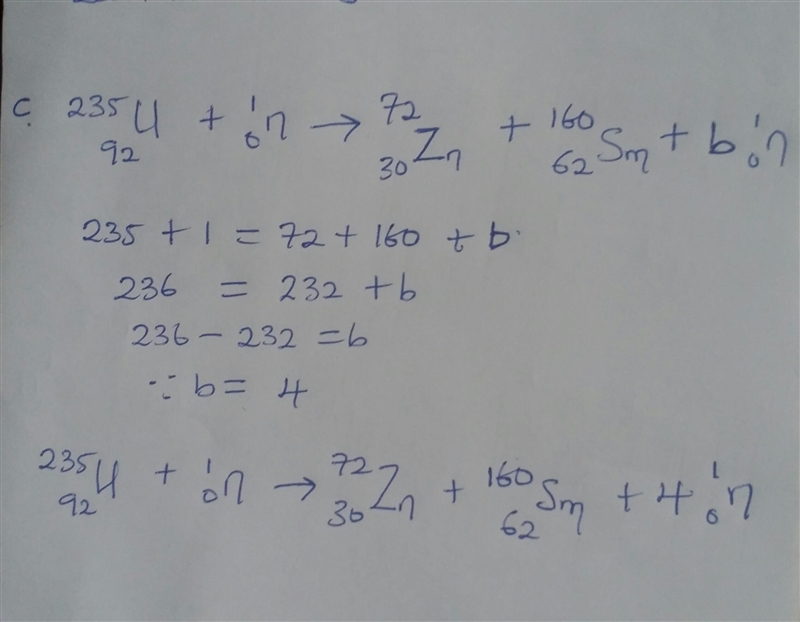 c. ²³⁵₉₂U + ¹₀n → ⁷²₃₀Zn + ¹⁶⁰₆₂Sm + b ¹₀n
235 + 1 = 72 + 160 + b
236 = 232 + b
236 - 232 = b
∵ b = 4
²³⁵₉₂U + ¹₀n → ⁷²₃₀Zn + ¹⁶⁰₆₂Sm + 4 ¹₀n